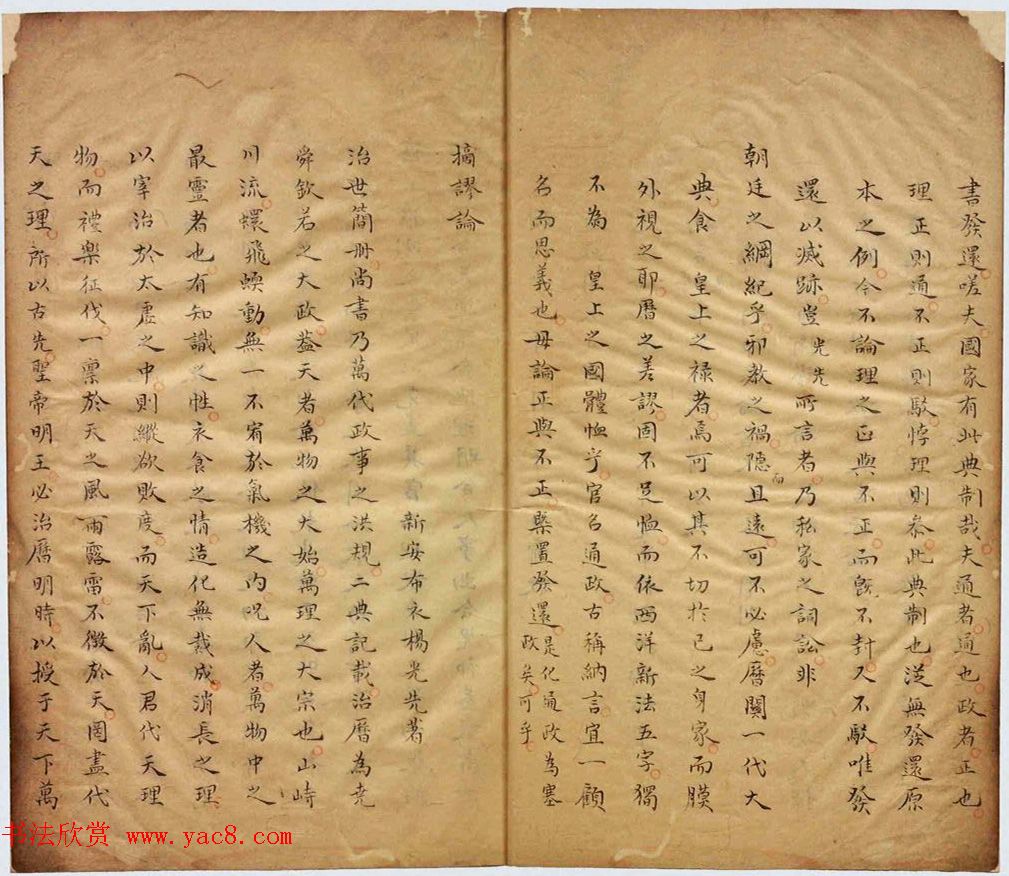 書發還嗟夫國家有此典制哉夫通者通也政者正也
理正則通不正則駁悖理則參此典制也從無發還原
本之例今不論理之正與不正而旣不封又不駁唯發
還以滅跡豈光先所言者乃私家之詞訟非
朝廷之綱紀乎邪教之禍隱而且遠可不必慮曆關一代大
典食 皇上之祿者焉可以其不切於己之身家而膜
外視之耶曆之差謬固不足恤而依西洋新法五字獨
不為 皇上之國體恤乎官名通政古稱納言宜一顧
名而思義也毋論正與不正槩置發還是化通政為塞政矣可乎
摘謬論
新安布衣楊光先著
治世簡冊尚書乃萬代政事之洪規二典記載治曆為堯
舜欽若之大政葢天者萬物之大始萬理之大宗也山峙
川流蠉飛蝡動無一不宥於氣機之內况人者萬物中之
最靈者也有知識之性衣食之情造化無裁成消長之理
以宰治於太虛之中則縱欲敗度而天下亂人君代天理
物而禮樂征伐一禀於天之風雨露雷不徵於天罔盡代
天之理所以古先聖帝明王必治曆明時以授于天下萬
书法欣赏 www.yac8.com